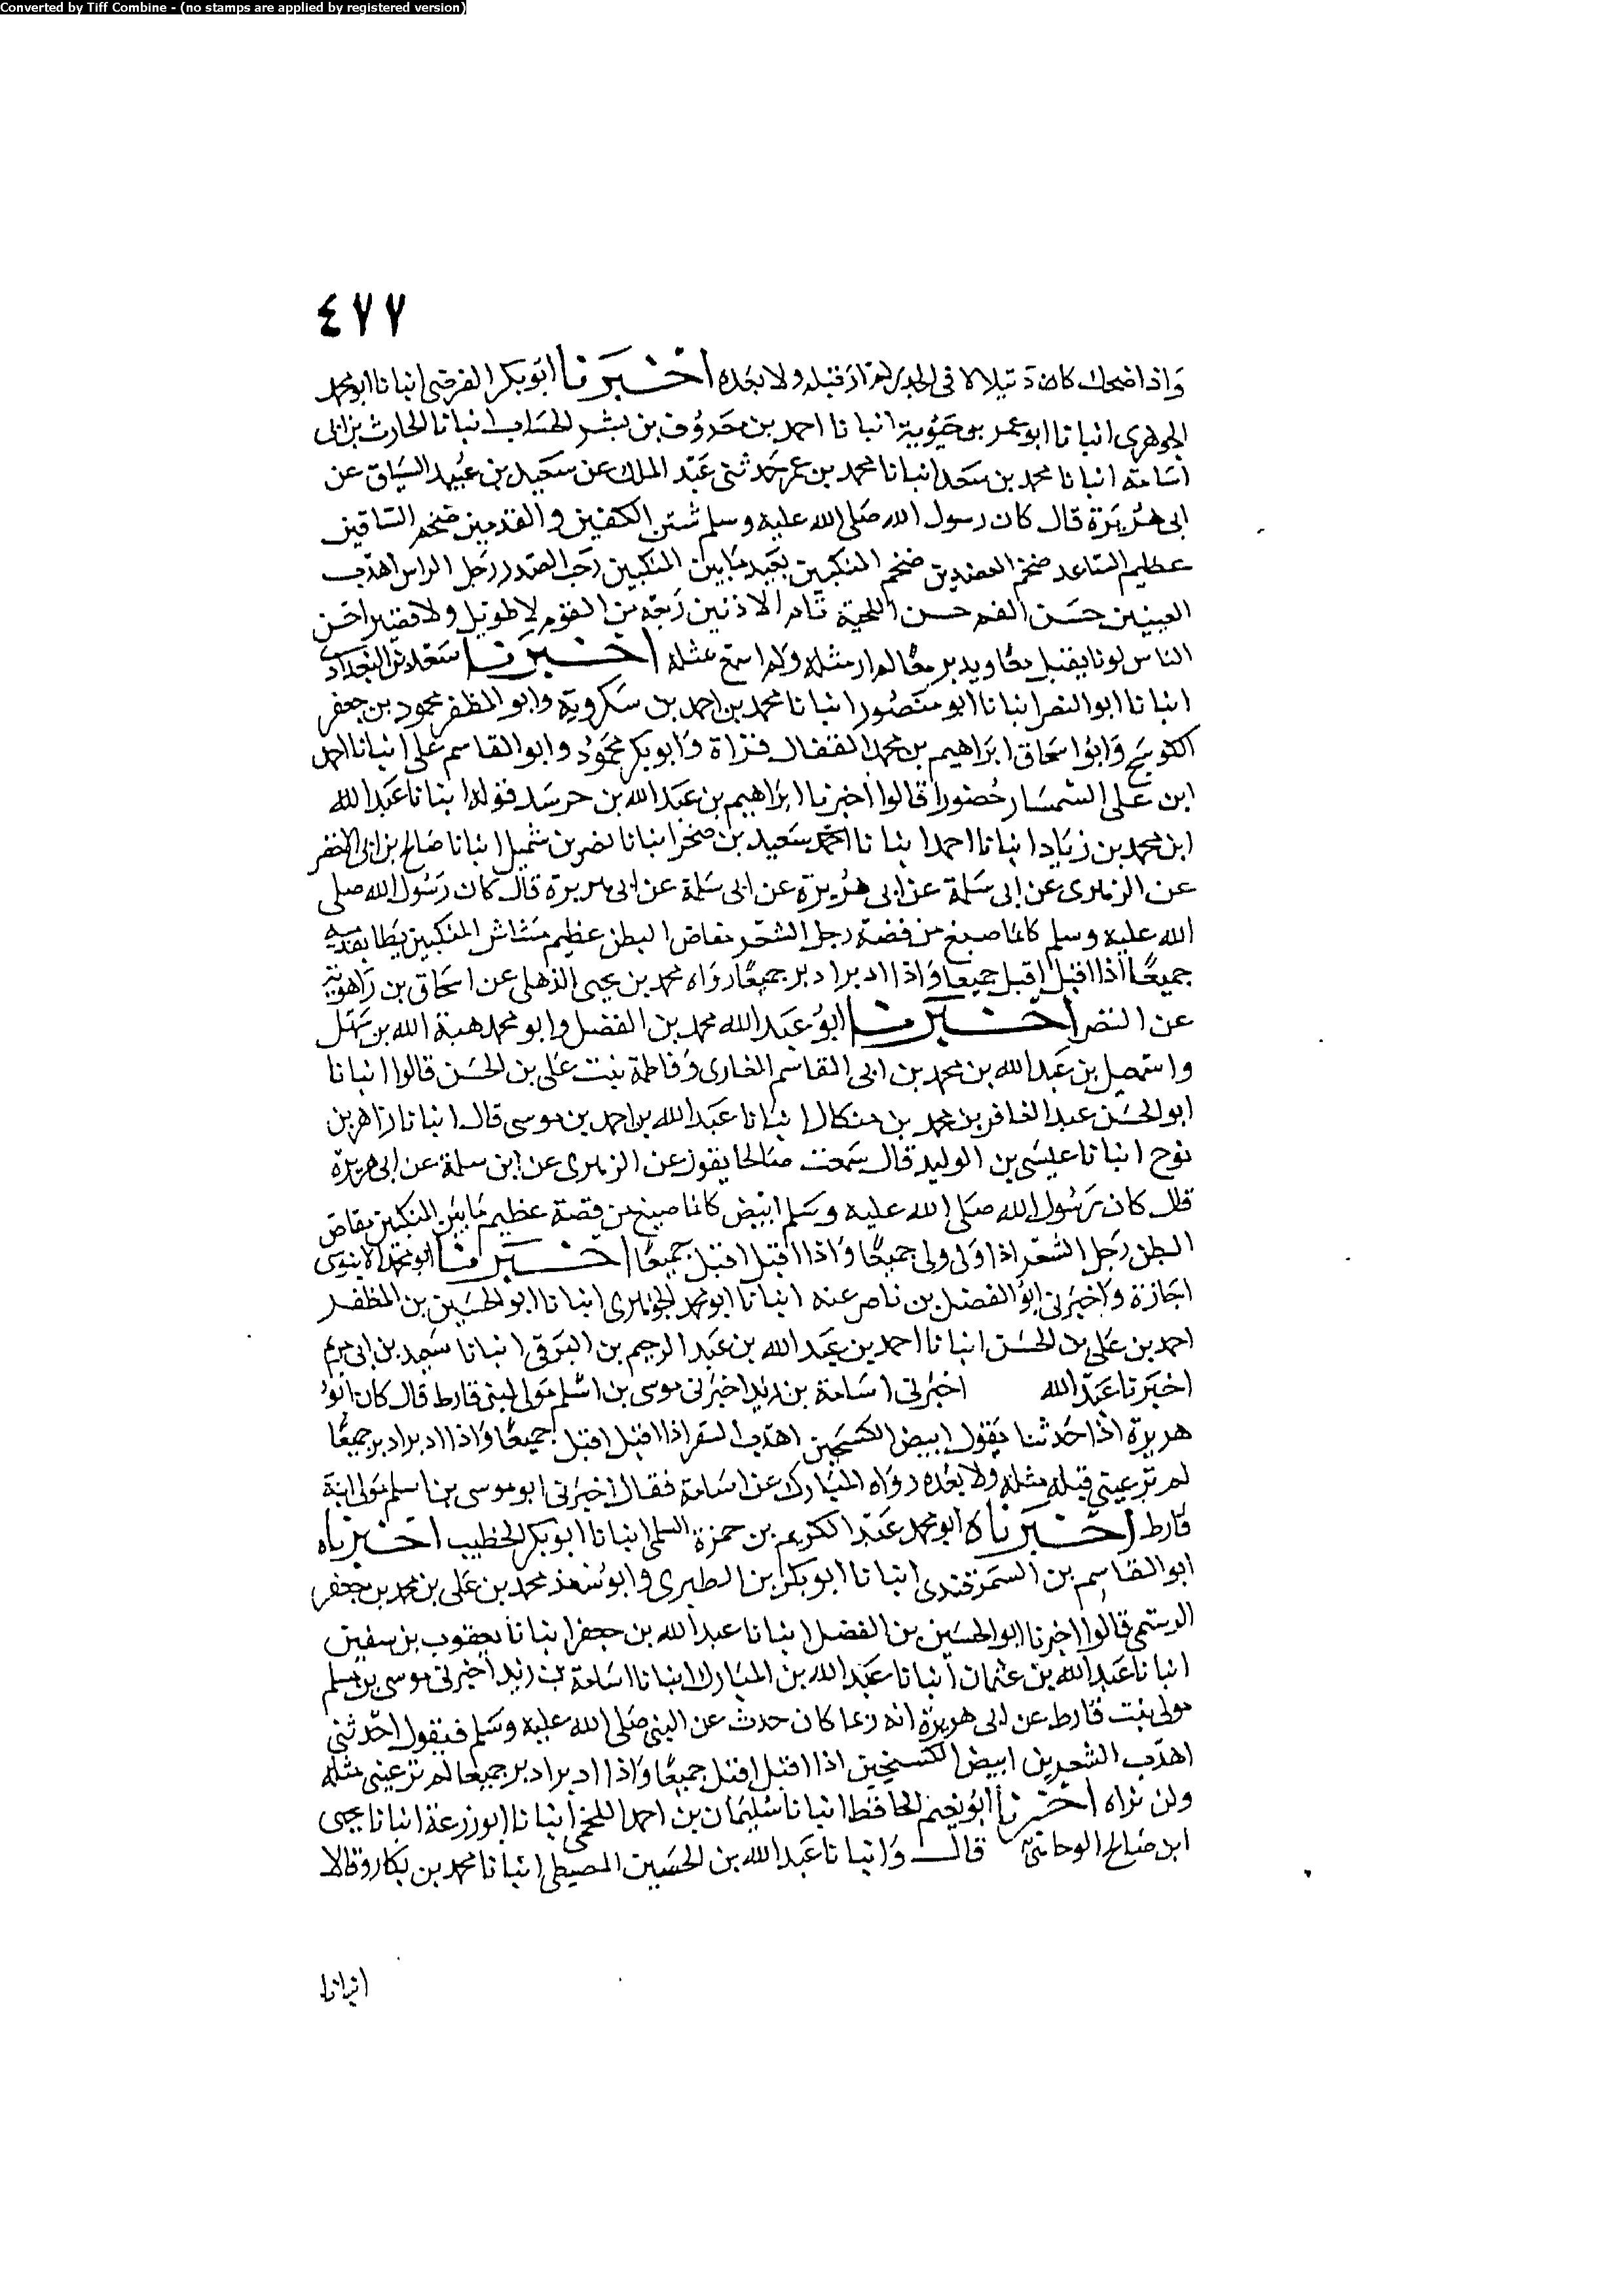 Converted by Tiff Combine - (no stamps are applied by registered version)
٤٧٧
واذا ضحك كاد يتلالا في الجدر لم ار قبله ولا بعده اخبرنا ابو بكر الفرضي انبانا ابو محمد
الجوهري انبانا ابو عمر بن حيوية انبانا احمد بن معروف بن بشر الخشاب انبانا الحارث بن ابي
اسامة انبانا محمد بن سعد انبانا محمد بن عمر حدثني عبد الملك عن سعيد بن عبيد السباق عن
ابي هريرة قال كان رسول الله صلى الله عليه وسلم شثن الكفين والقدمين ضخم الساقين
عظيم الساعد ضخم العضدين ضخم المنكبين بعيد ما بين المنكبين رحب الصدر رجل الراس اهدب
العينين حسن الفم حسن اللحية تام الاذنين ربعه من القوم لا طويل ولا قصير احسن
الناس لونا يقبل معا ويدبر معا لم ار مثله ولم اسمع بمثله اخبرنا سعد بن البغدادي
انبانا ابو النصر انبانا ابو منصور انبانا محمد بن احمد بن شكرويه وابو المظفر محمود بن جعفر
الكوسج وابو اسحاق ابراهيم بن محمد القفال قراة وابو بكر محمود وابو القاسم علي انبانا احمد
ابن علي السمسار حضورا قالوا اخبرنا ابراهيم بن عبد الله بن خرشد قوله انبانا عبد الله
ابن محمد بن زياد انبانا احمد انبانا احمد سعيد بن صخر انبانا نضر بن شميل انبانا صالح بن ابي الاخضر
عن الزهري عن ابي سلمة عن ابي هريرة عن ابي سلمة عن ابي هريرة قال كان رسول الله صلى
الله عليه وسلم كانما صيغ من فضة رجل الشعر مفاض البطن عظيم مشاش المنكبين يطا بقدميه
جميعا اذا اقبل اقبل جميعا واذا ادبر ادبر جميعا رواه محمد بن يحيى الذهلي عن اسحاق بن راهوية
عن النضر اخبرنا ابو عبد الله محمد بن الفضل وابو محمد هبة الله بن سهل
واسمعيل بن عبد الله بن محمد بن ابي القاسم الغاري وفاطمة بنت علي بن الحسن قالوا انبانا
ابو الحسن عبد الغافر بن محمد بن منكال انبانا عبد الله بن احمد بن موسى قال انبانا زاهر بن
نوح انبانا عيسى بن الوليد قال سمعت صالحا يقول عن الزهري عن ابن سلمة عن ابي هريرة
قال كان رسول الله صلى الله عليه وسلم ابيض كانما صيغ من فضة عظيم ما بين المنكبين مفاض
البطن رجل الشعر اذا ولى ولى جميعا واذا اقبل اقبل جميعا اخبرنا ابو محمد الابنوسي
اجازة واخبرني ابو الفضل بن ناصر عنه انبانا ابو محمد الجوهري انبانا ابو الحسين بن المظفر
احمد بن علي بن الحسن انبانا احمد بن عبد الله بن عبد الرحيم بن البرقي انبانا سعيد بن ابي مريم
اخبرنا عبد الله اخبرني اسامة بن زيد اخبرني موسى بن اسلم مولى لبني قارط قال كان ابو
هريرة اذا حدثنا يقول ابيض الكشحين اهدب الشفر اذا اقبل اقبل جميعا واذا ادبر ادبر جميعا
لم تر عيني قبله مثله ولا بعده رواه المبارك عن اسامة فقال اخبرني ابو موسى بن اسلم مولى ابنة
قارط اخبرناه ابو محمد عبد الكريم بن حمزة السلمي انبانا ابو بكر الخطيب اخبرناه
ابو القاسم بن السمرقندي انبانا ابو بكر بن الطبري وابو سعد محمد بن علي بن محمد بن جعفر
الرستمي قالوا اخبرنا ابو الحسين بن الفضل انبانا عبد الله بن جعفر انبانا يعقوب بن سفين
انبانا عبد الله بن عثمان انبانا عبد الله بن المبارك انبانا اسامة بن زيد اخبرني موسى بن مسلم
مولى بنت قارط عن ابي هريرة انه ربما كان حدث عن النبي صلى الله عليه وسلم فيقول حدثني
اهدب الشعرين ابيض الكشحين اذا اقبل اقبل جميعا واذا ادبر ادبر جميعا لم تر عيني مثله
ولن تراه اخبرنا ابو نعيم الحافظ انبانا سليمان بن احمد اللخمي انبانا ابو زرعة انبانا يحيى
ابن صالح الوحاظي قال وانبانا عبد الله بن الحسين المصيصي انبانا محمد بن بكار وقالا
انبانا